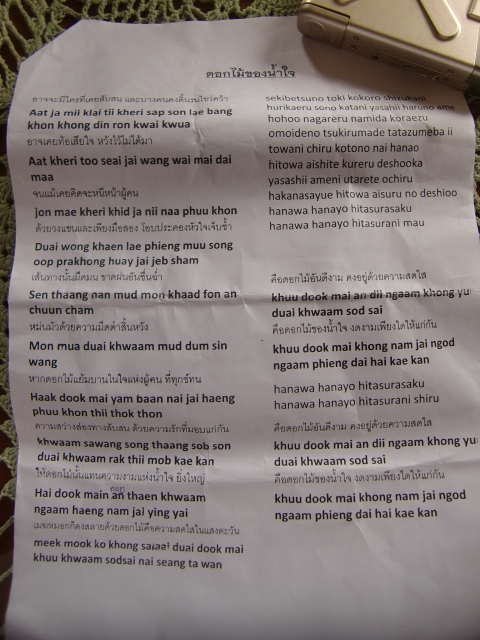 ดอกไม้ของน้ำใจ
อาจจะมีใครที่เคยสับสน และบางคนคงดิ้นรนไขว่คว้า
Aat ja mii klai tii kheri sap son lae bang
khon khong din ron kwai kwua
อาจเคยท้อเสียใจ หวังไว้ไม่ได้มา
Aat kheri too seai jai wang wai mai dai
maa
จนแม้เคยคิดจะหนีหน้าผู้คน
jon mae kheri khid ja nii naa phuu khon
ด้วยวงแขนและเพียงมือสอง โอบประคองหัวใจเจ็บช้ำ
Duai wong khaen lae phieng muu song
oop prakhong huay jai jeb sham
เส้นทางนั้นมืดมน ขาดฝนอันชื่นฉ่ำ
Sen thaang nan mud mon khaad fon an
chuun cham
หม่นมัวด้วยความมืดดำสิ้นหวัง
Mon mua duai khwaam mud dum sin
wang
หากดอกไม้แย้มบานในใจแห่งผู้คน ที่ทุกข์ทน
Haak dook mai yam baan nai jai haeng
phuu khon thii thok thon
ความสว่างส่องทางสับสน ด้วยความรักที่มอบแก่กัน
khwaam sawang song thaang sob son
duai khwaam rak thii mob kae kan
ให้ดอกไม้นั้นแทนความงามแห่งน้ำใจ ยิ่งใหญ่
Hai dook main an thaen khwaam
ngaam haeng nam jal ying yai
เมฆหมอกก็คงสลายด้วยดอกไม้คือความสดใสในแสงตะวัน
meek mook ko khong salaai duai dook mai
khuu khwaam sodsai nai seang ta wan
sekibetsuno toki kokoro shizukani
hurikaeru sono katani yasahii haruno ame
hohoo nagareru namida koraezu
omoideno tsukirumade tatazumeba ii
towani chiru kotono nai hanao
hitowa aishite kureru deshooka
yasashii ameni utarete ochiru
hakanasayue hitowa aisuru no deshioo
hanawa hanayo hitasurasaku
hanawa hanayo hitasurani mau
คือดอกไม้อันดีงาม คงอยู่ด้วยความสดใส
khuu dook mai an dii ngaam khong yu
duai khwaam sod sai
คือดอกไม้ของน้ำใจ งดงามเพียงใดให้แก่กัน
khuu dook mai khong nam jai ngod
ngaam phieng dai hai kae kan
hanawa hanayo hitasurasaku
hanawa hanayo hitasurani shiru
คือดอกไม้อันดีงาม คงอยู่ด้วยความสดใส
khuu dook mai an dii ngaam khong yu
duai khwaam sod sai
คือดอกไม้ของน้ำใจ งดงามเพียงใดให้แก่กัน
khuu dook mai khong nam jai ngod
ngaam phieng dai hai kae kan